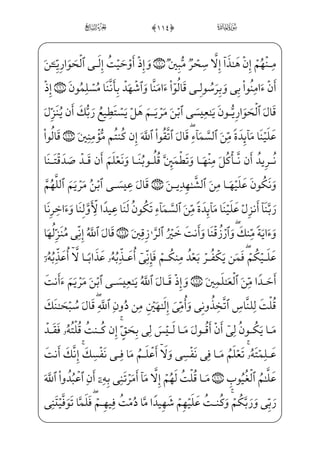 سورة المائدة ﴿١١٤﴾ الجزء السابع
مِنْهُمْ إِنْ هَٰذَآ إِلَّا سِحْرٌ مُّبِينٌ ١١٠ وَإِذْ أَوْحَيْتُ إِلَى ٱلْحَوَارِيِّـۧنَ
أَنْ ءَامِنُوا۟ بِى وَبِرَسُولِى قَالُوٓا۟ ءَامَنَّا وَٱشْهَدْ بِأَنَّنَا مُسْلِمُونَ ١١١ إِذْ
قَالَ ٱلْحَوَارِيُّونَ يَٰعِيسَى ٱبْنَ مَرْيَمَ هَلْ يَسْتَطِيعُ رَبُّكَ أَن يُنَزِّلَ
عَلَيْنَا مَآئِدَةً مِّنَ ٱلسَّمَآءِ ۖ قَالَ ٱتَّقُوا۟ ٱللَّهَ إِن كُنتُم مُّؤْمِنِينَ ١١٢ قَالُوا۟
نُرِيدُ أَن نَّأْكُلَ مِنْهَا وَتَطْمَئِنَّ قُلُوبُنَا وَنَعْلَمَ أَن قَدْ صَدَقْتَنَا
وَنَكُونَ عَلَيْهَا مِنَ ٱلشَّٰهِدِينَ ١١٣ قَالَ عِيسَى ٱبْنُ مَرْيَمَ ٱللَّهُمَّ
رَبَّنَآ أَنزِلْ عَلَيْنَا مَآئِدَةً مِّنَ ٱلسَّمَآءِ تَكُونُ لَنَا عِيدًا لِّأَوَّلِنَا وَءَاخِرِنَا
وَءَايَةً مِّنكَ ۖ وَٱرْزُقْنَا وَأَنتَ خَيْرُ ٱلرَّٰزِقِينَ ١١٤ قَالَ ٱللَّهُ إِنِّى مُنَزِّلُهَا
عَلَيْكُمْ ۖ فَمَن يَكْفُرْ بَعْدُ مِنكُمْ فَإِنِّىٓ أُعَذِّبُهُۥ عَذَابًا لَّآ أُعَذِّبُهُۥٓ
أَحَدًا مِّنَ ٱلْعَٰلَمِينَ ١١٥ وَإِذْ قَالَ ٱللَّهُ يَٰعِيسَى ٱبْنَ مَرْيَمَ ءَأَنتَ
قُلْتَ لِلنَّاسِ ٱتَّخِذُونِى وَأُمِّىَ إِلَٰهَيْنِ مِن دُونِ ٱللَّهِ ۖ قَالَ سُبْحَٰنَكَ
مَا يَكُونُ لِىٓ أَنْ أَقُولَ مَا لَيْسَ لِى بِحَقٍّ ۚ إِن كُنتُ قُلْتُهُۥ فَقَدْ
عَلِمْتَهُۥ ۚ تَعْلَمُ مَا فِى نَفْسِى وَلَآ أَعْلَمُ مَا فِى نَفْسِكَ ۚ إِنَّكَ أَنتَ
عَلَّٰمُ ٱلْغُيُوبِ ١١٦ مَا قُلْتُ لَهُمْ إِلَّا مَآ أَمَرْتَنِى بِهِۦٓ أَنِ ٱعْبُدُوا۟ ٱللَّهَ
رَبِّى وَرَبَّكُمْ ۚ وَكُنتُ عَلَيْهِمْ شَهِيدًا مَّا دُمْتُ فِيهِمْ ۖ فَلَمَّا تَوَفَّيْتَنِى